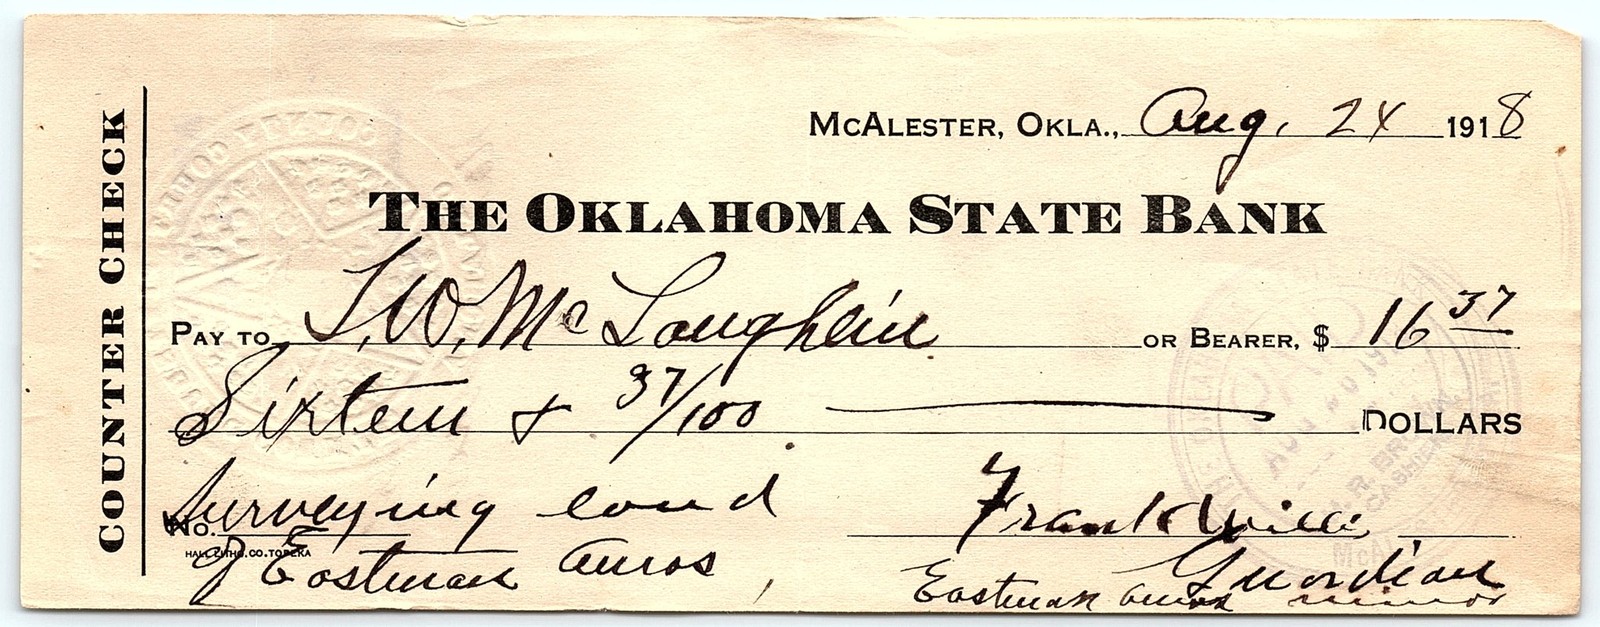 COUNTER CHECK
McAlester, Okla., Aug. 24 1918
The Oklahoma State Bank
Pay to J. W. McLoughlin or Bearer, $ 16 37
Sixteen & 37/100 Dollars
Surveying land
No.
Frank Willi
HALL LITHO. CO. TOPEKA
of Eastman Amos
Guardian
Eastman Amos minor
PAID
CASHIER